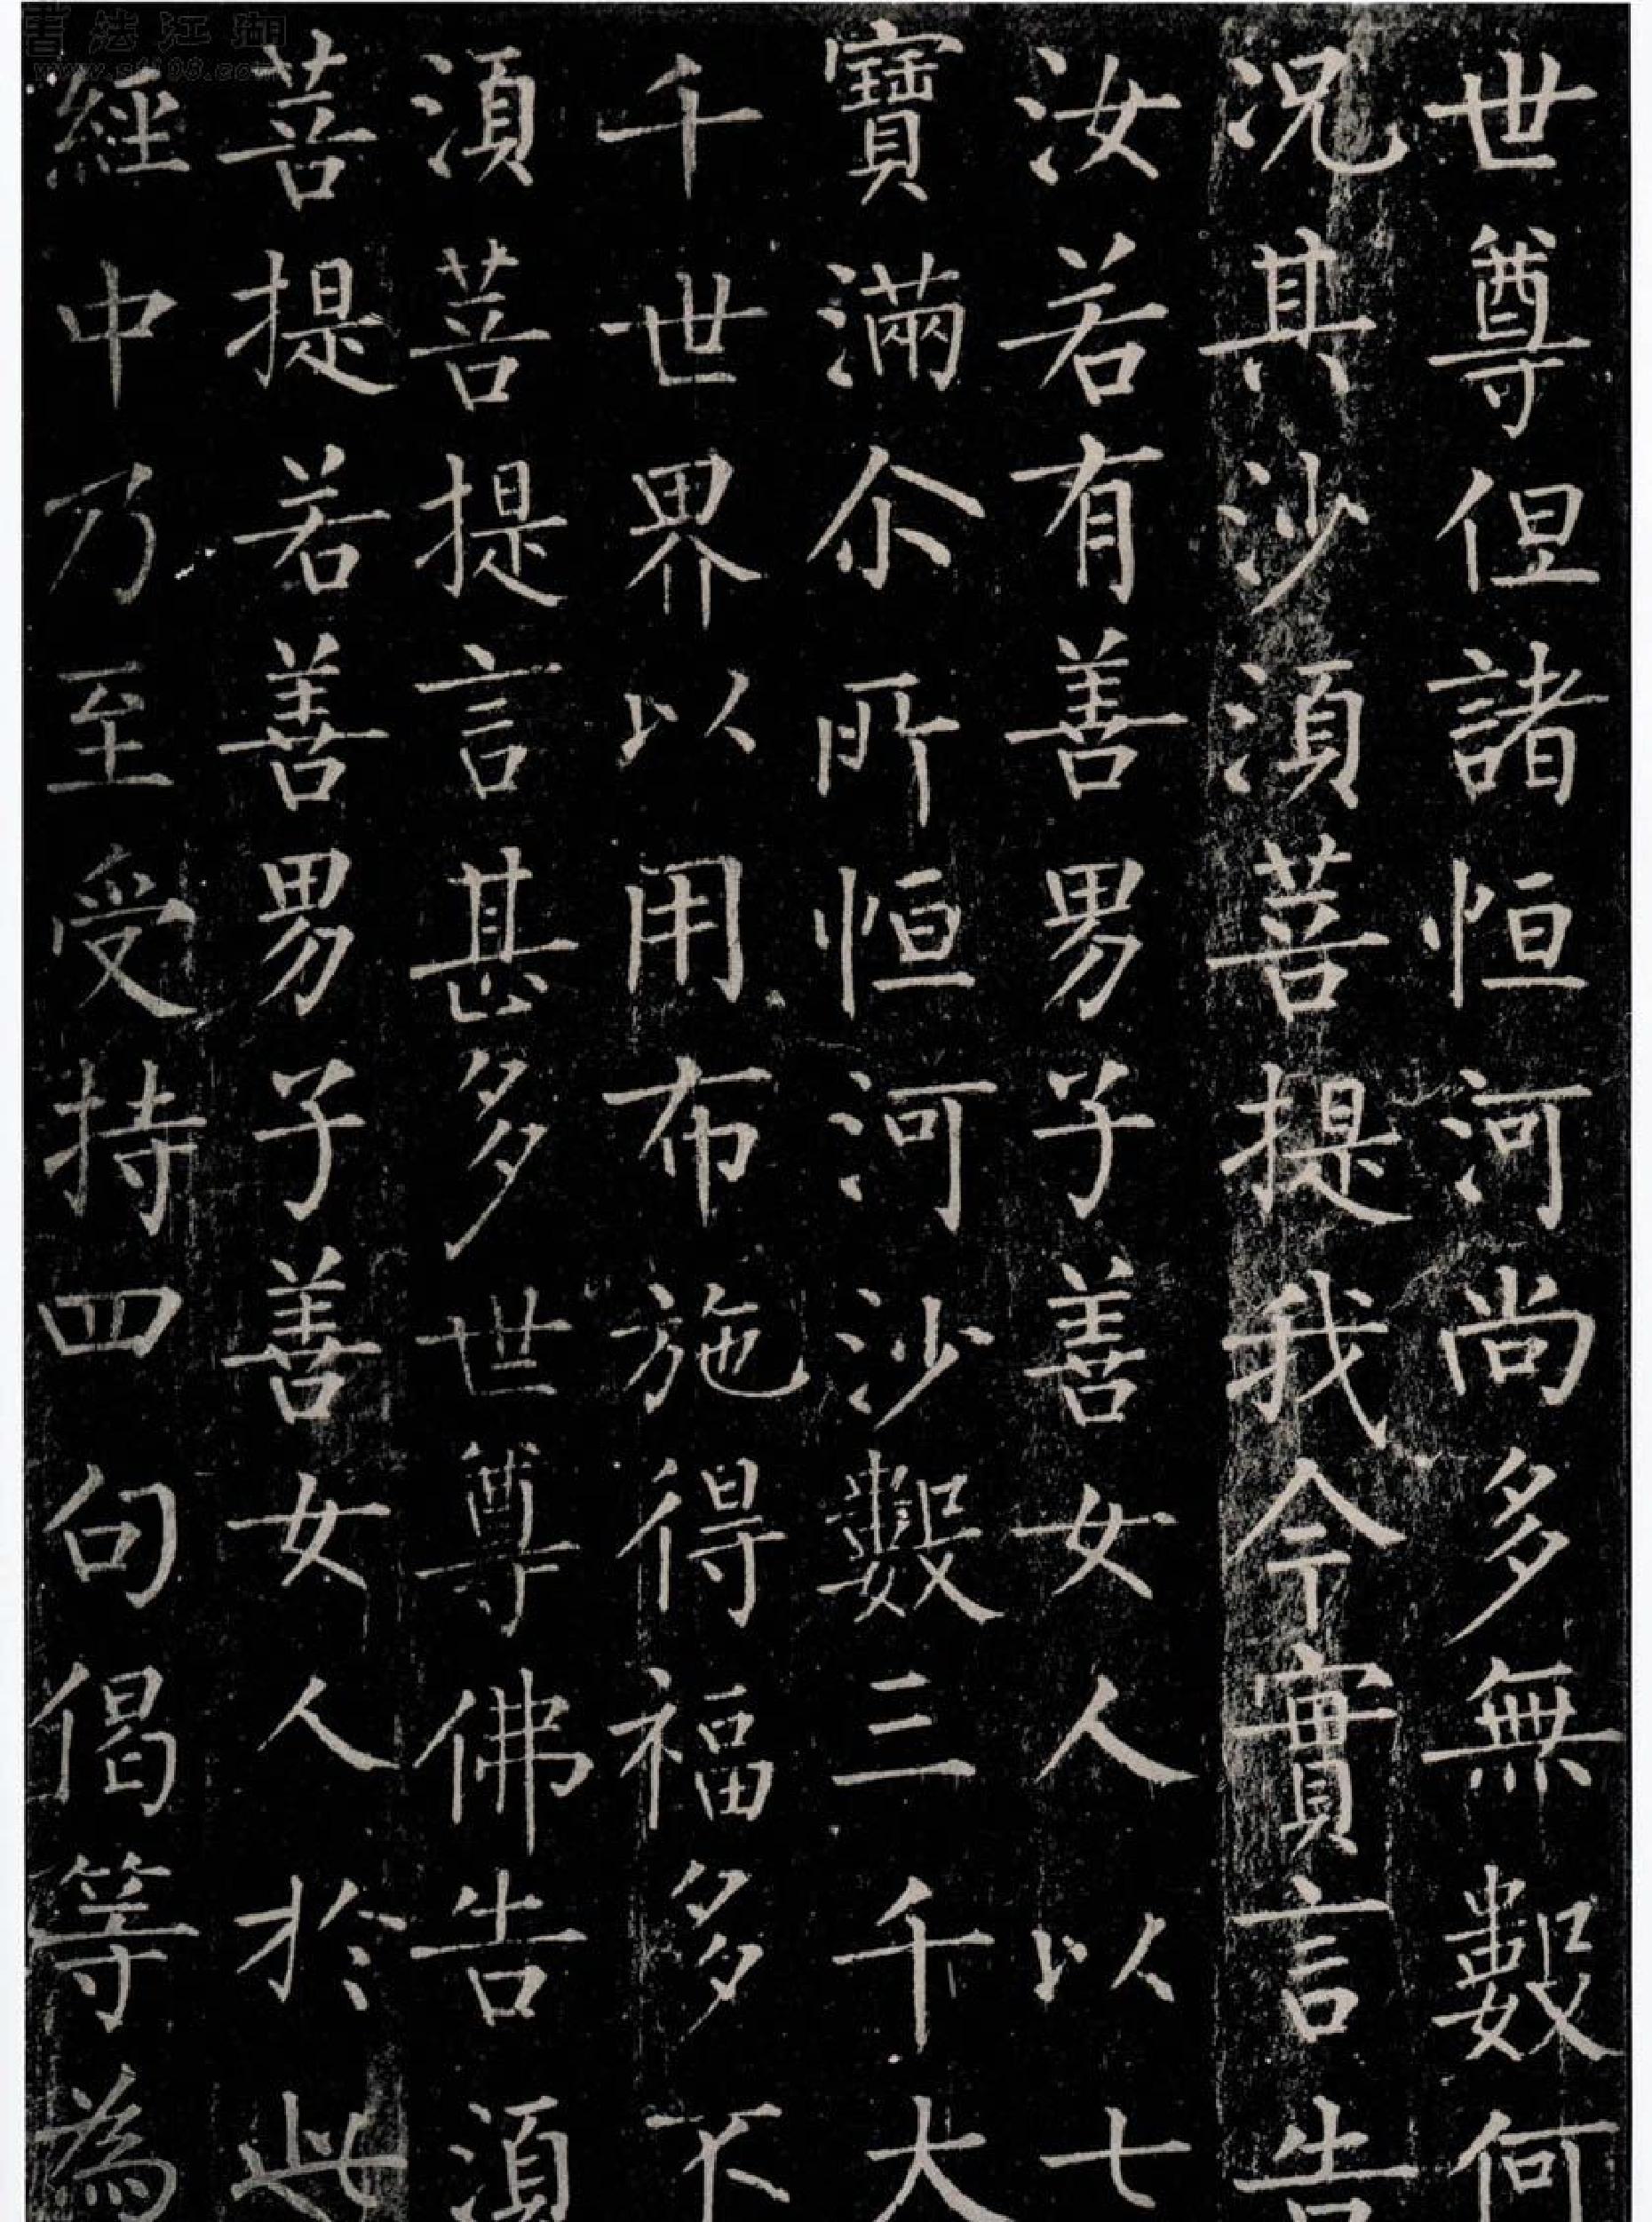 世尊但諸恒河尚多無數何
況其沙須菩提我今實言告
汝若有善男子善女人以七
寶滿尒所恒河沙數三千大
千世界以用布施得福多不
須菩提言甚多世尊佛告須
菩提若善男子善女人於此
經中乃至受持四句偈等為
書法江湖